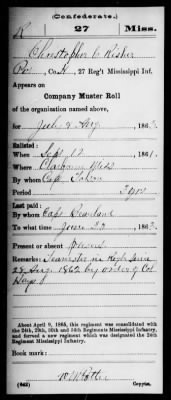 (Confederate.)
R 27 Miss.
Christopher C Risher
Co. H, 27 Reg't Mississippi Inf.
Appears on
Company Muster Roll
of the organization named above,
for July & Aug, 1863.
Enlisted:
When Sept 12, 1861.
Where
By whom Capt
Period 3 yrs
Last paid:
By whom Capt
To what time June 30, 1863.
Present or absent Present
Remarks: Teamster in
28 Aug. 1862 by order of Col
Hays
About April 9, 1865, this regiment was consolidated with
the 24th, 29th, 30th and 34th Mississippi Infantry,
and formed a new regiment which was designated the
24th Regiment Mississippi Infantry.
Book mark:
(642) Copyist.